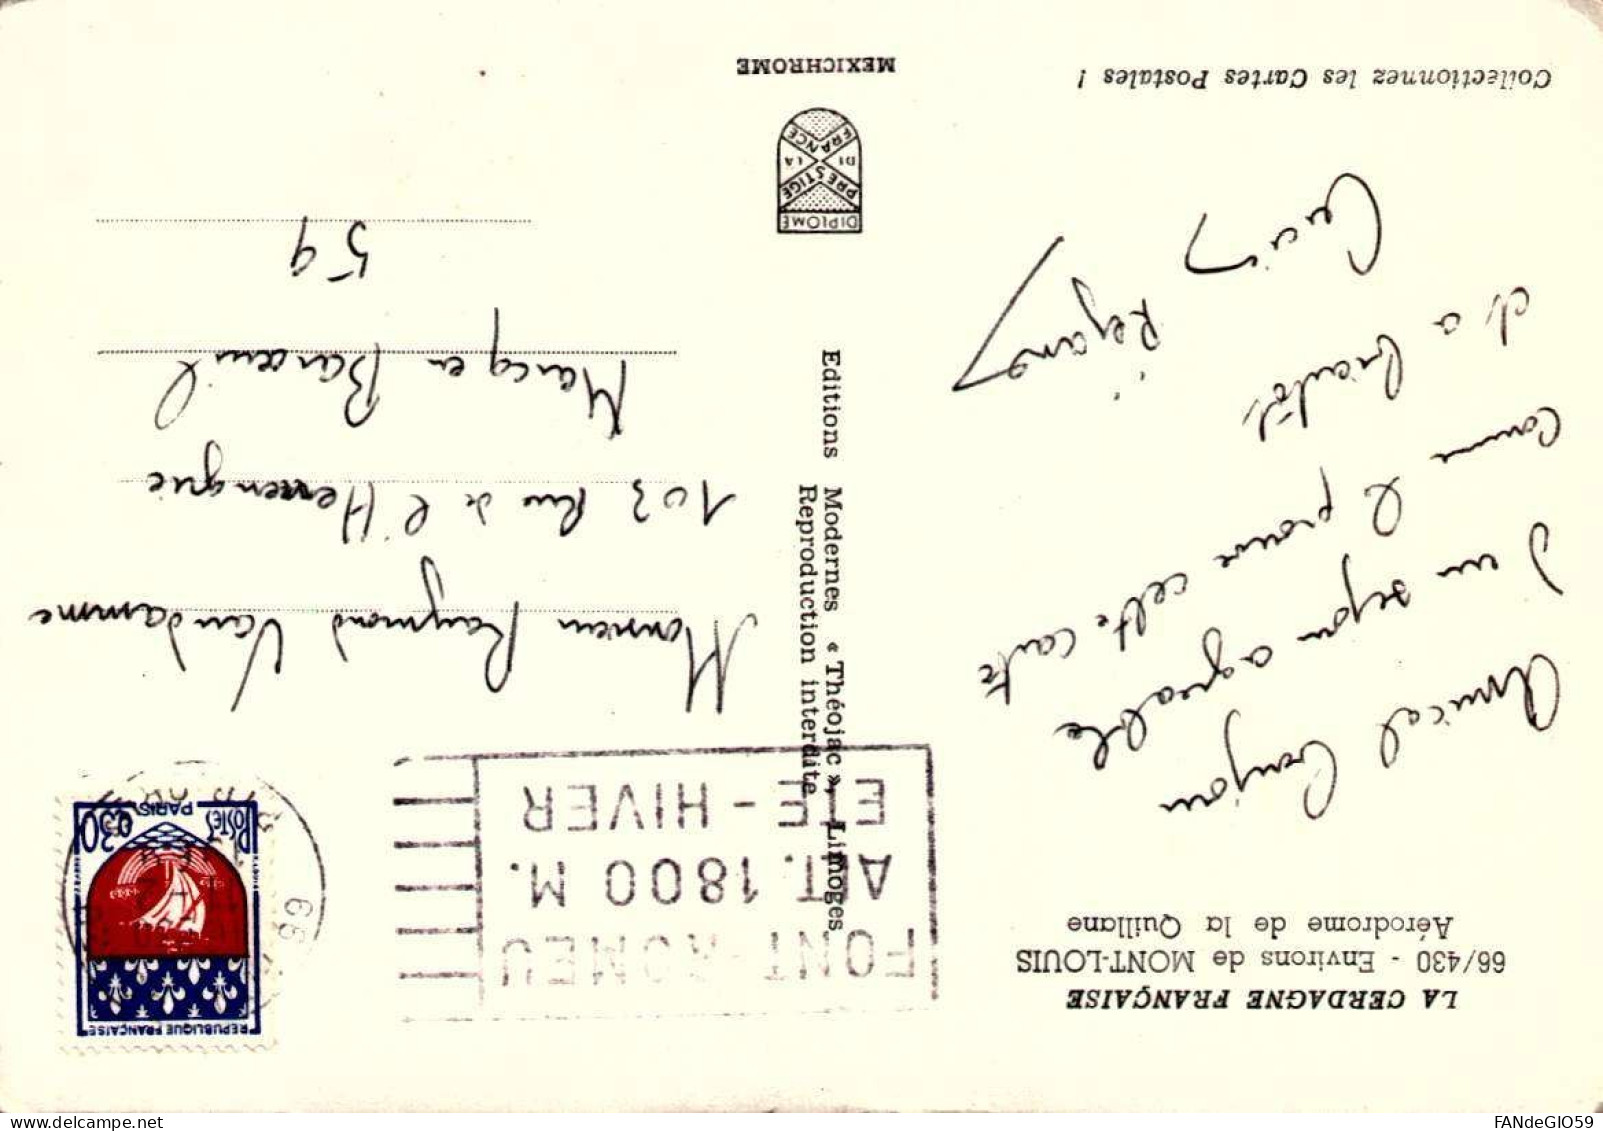 LA CERDAGNE FRANÇAISE
66/430 - Environs de MONT-LOUIS
Aérodrome de la Quillane
Amical bonjour
d'un séjour agréable
comme le prouve cette carte
et a bientôt
Régane
Collectionnez les Cartes Postales !
Editions Modernes « Théojac », Limoges
Reproduction interdite
DIPLOME
PRESTIGE
DE LA
FRANCE
MEXICHROME
FONT-ROMEU
ALT. 1800 M.
ETE - HIVER
REPUBLIQUE FRANÇAISE
POSTES
0,30
PARIS
66
Monsieur Raymond Vandamme
103 Rue de l'Herrengrie
Marcq en Baroeul
59
FANdeGIO59